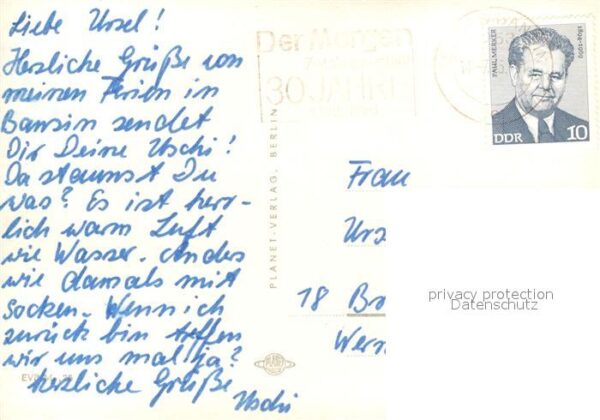 Liebe Ursel!
Herzliche Grüße von
meinen Ferien in
Bansin sendet
Dir Deine Uschi!
Da staunst Du
was? Es ist herr-
lich warm Luft
wie Wasser. Anders
wie damals mit
Socken. Wenn ich
zurück bin treffen
wir uns mal ja?
herzliche Grüße
Uschi
PLANET-VERLAG, BERLIN
Der Morgen
30 JAHRE
PAUL MERKER
DDR 10
Frau
Urs
18 Br
Wern
privacy protection
Datenschutz